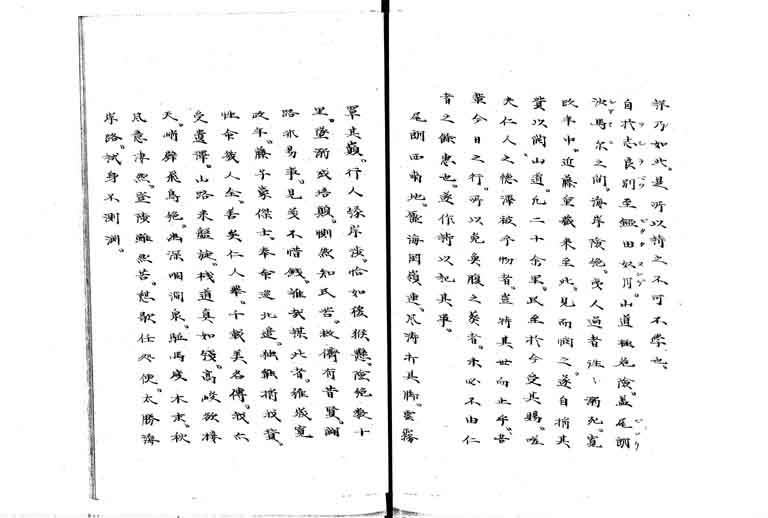 詳乃如此。是所以詩之不可不學也。
自於志良別至鐚田奴月。山道極危險。蓋尾朗
沙馬尓之間。海岸險絶。夷人過者往々溺死。寛
政年中。近藤重蔵来至此。見而閔之。遂自捐其
貲以開山道。凡二十余里。民至於今受其賜。嗟
夫仁人之德澤被于物者。豈特其世而止乎。吾
輩今日之行。所以免魚腹之葬者。未必不由仁
者之餘惠也。遂作詩以記其事。
尾朗西南地。海岡嶺連。風濤打其脚。雲霧
罩其巓。行人縁岸度。恰如猿猴懸。險絶数十
里。墜溺或顛。惻然知民苦。救濟有昔賢。開
路非易事。見義不惜錢。誰哉謀此者。維歳寛
政年。藤子豪傑士。奉命巡北邊。独能捐私貲。
性命幾人全。善矣仁人挙。千載美名傳。我亦
受遺澤。山路来盤旋。桟道真如綫。高峻欲梯
天。峭壁飛鳥絶。幽深咽澗泉。駐馬木末。秋
風意凄然。登陟雖然苦。憩歇任処便。太勝海
岸路。試身不測淵。